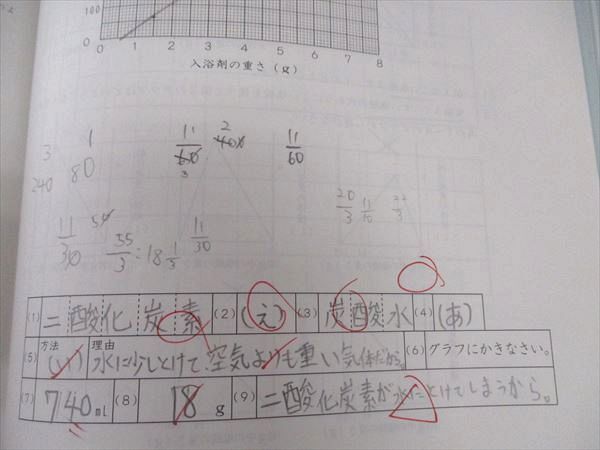 100
0
0 1 2 3 4 5 6 7 8
入浴剤の重さ(g)
3 1
240 80
11/60 2 400 11/60
3
20/3 11/10
11/30 50 55/3 : 18 1/3 11/30
(1) 二酸化炭素 (2) (え) (3) 炭酸水 (4) (あ)
(5) 方法 (い) 理由 水に少しとけて、空気よりも重い気体だから。 (6) グラフにかきなさい。
(7) 740 mL (8) 18 g (9) 二酸化炭素が水にとけてしまうから。